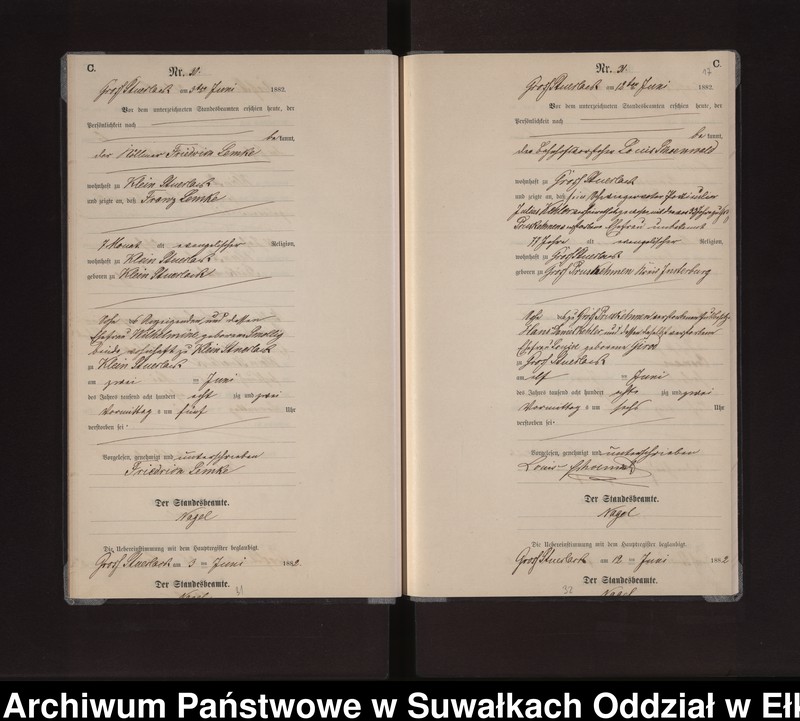 C.
Nr. 20.
Groß Stuerlack am 3ten Juni 1882.
Vor dem unterzeichneten Standesbeamten erschien heute, der
Persönlichkeit nach
bekannt,
der Friedrich Lemke
wohnhaft zu Klein Stuerlack
und zeigte an, daß Franz Lemke
1 Monat alt evangelischer Religion,
wohnhaft zu Klein Stuerlack
geboren zu Klein Stuerlack
Sohn des Anzeigenden, und dessen
Ehefrau Wilhelmine geborenen
beide wohnhaft zu Klein Stuerlack
zu Klein Stuerlack
am zwei ten Juni
des Jahres tausend acht hundert acht zig und zwei
Vormittags um fünf Uhr
verstorben sei.
Vorgelesen, genehmigt und unterschrieben
Friedrich Lemke
Der Standesbeamte.
Nagel
Die Uebereinstimmung mit dem Hauptregister beglaubigt.
Groß Stuerlack am 3 ten Juni 1882.
Der Standesbeamte.
Nagel
31
C.
17
Nr. 21.
Groß Stuerlack am 12ten Juni 1882.
Vor dem unterzeichneten Standesbeamten erschien heute, der
Persönlichkeit nach
bekannt,
der Louis Schoenwald
wohnhaft zu Groß Stuerlack
und zeigte an, daß
Julius Köhler
Ehefrau unbekannt
77 Jahre alt evangelischer Religion,
wohnhaft zu Groß Stuerlack
geboren zu Groß Kreis Insterburg
Sohn des zu Groß verstorbenen
Köhler und dessen daselbst verstorbenen
Ehefrau Louise geborene
zu Groß Stuerlack
am elf ten Juni
des Jahres tausend acht hundert acht zig und zwei
Vormittags um sechs Uhr
verstorben sei.
Vorgelesen, genehmigt und unterschrieben
Louis
Der Standesbeamte.
Nagel
Die Uebereinstimmung mit dem Hauptregister beglaubigt.
Groß Stuerlack am 12 ten Juni 1882
Der Standesbeamte.
Nagel
32
Archiwum Państwowe w Suwałkach Oddział w Ełk